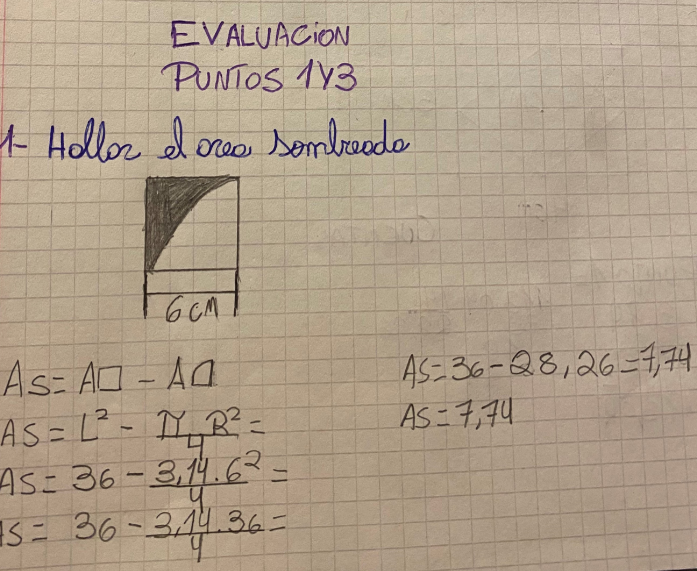 EVALUACION
PUNTOS 1Y3
1- Hallar el area sombreada
6 CM
AS = A□ - A◺
AS = L² - π.R²/4 =
AS = 36 - 3,14.6²/4 =
AS = 36 - 3,14.36/4 =
AS = 36 - 28,26 = 7,74
AS = 7,74